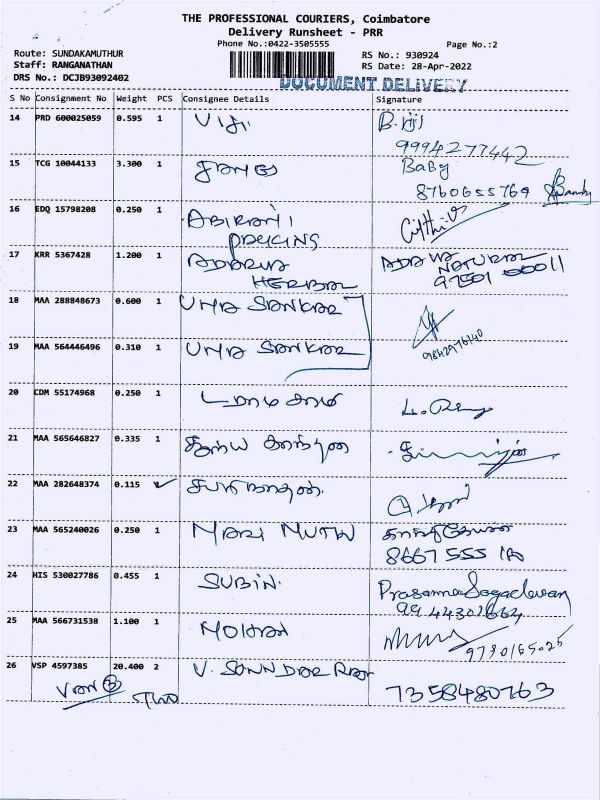 THE PROFESSIONAL COURIERS, Coimbatore
Delivery Runsheet - PRR
Phone No.:0422-3505555
Page No.:2
Route: SUNDAKAMUTHUR
Staff: RANGANATHAN
DRS No.: DCJB93092402
RS No.: 930924
RS Date: 28-Apr-2022
DOCUMENT DELIVERY
S No Consignment No Weight PCS Consignee Details Signature
14 PRD 600025059 0.595 1 VIJI B.Viji
9994277442
15 TCG 10044133 3.300 1 Baby
8760655769
16 EDQ 15798208 0.250 1 ABIRAMI
PACKINGS
17 KRR 5367428 1.200 1 ADARVA ADAVA
HERBAL NATURAL
97501 00011
18 MAA 288848673 0.600 1 UMA SANKAR
19 MAA 564446496 0.310 1 UMA SANKAR
9842976140
20 CDM 55174968 0.250 1
21 MAA 565646827 0.335 1
22 MAA 282648374 0.115 1 சபரிநாதன்
23 MAA 565240026 0.250 1 MARI MUTHU
8667 555
24 HIS 530027786 0.455 1 SUBIN. Prasanna
25 MAA 566731538 1.100 1 MOHAN
9790165025
26 VSP 4597385 20.400 2 V. SOUNDAR RAJ
7358480763